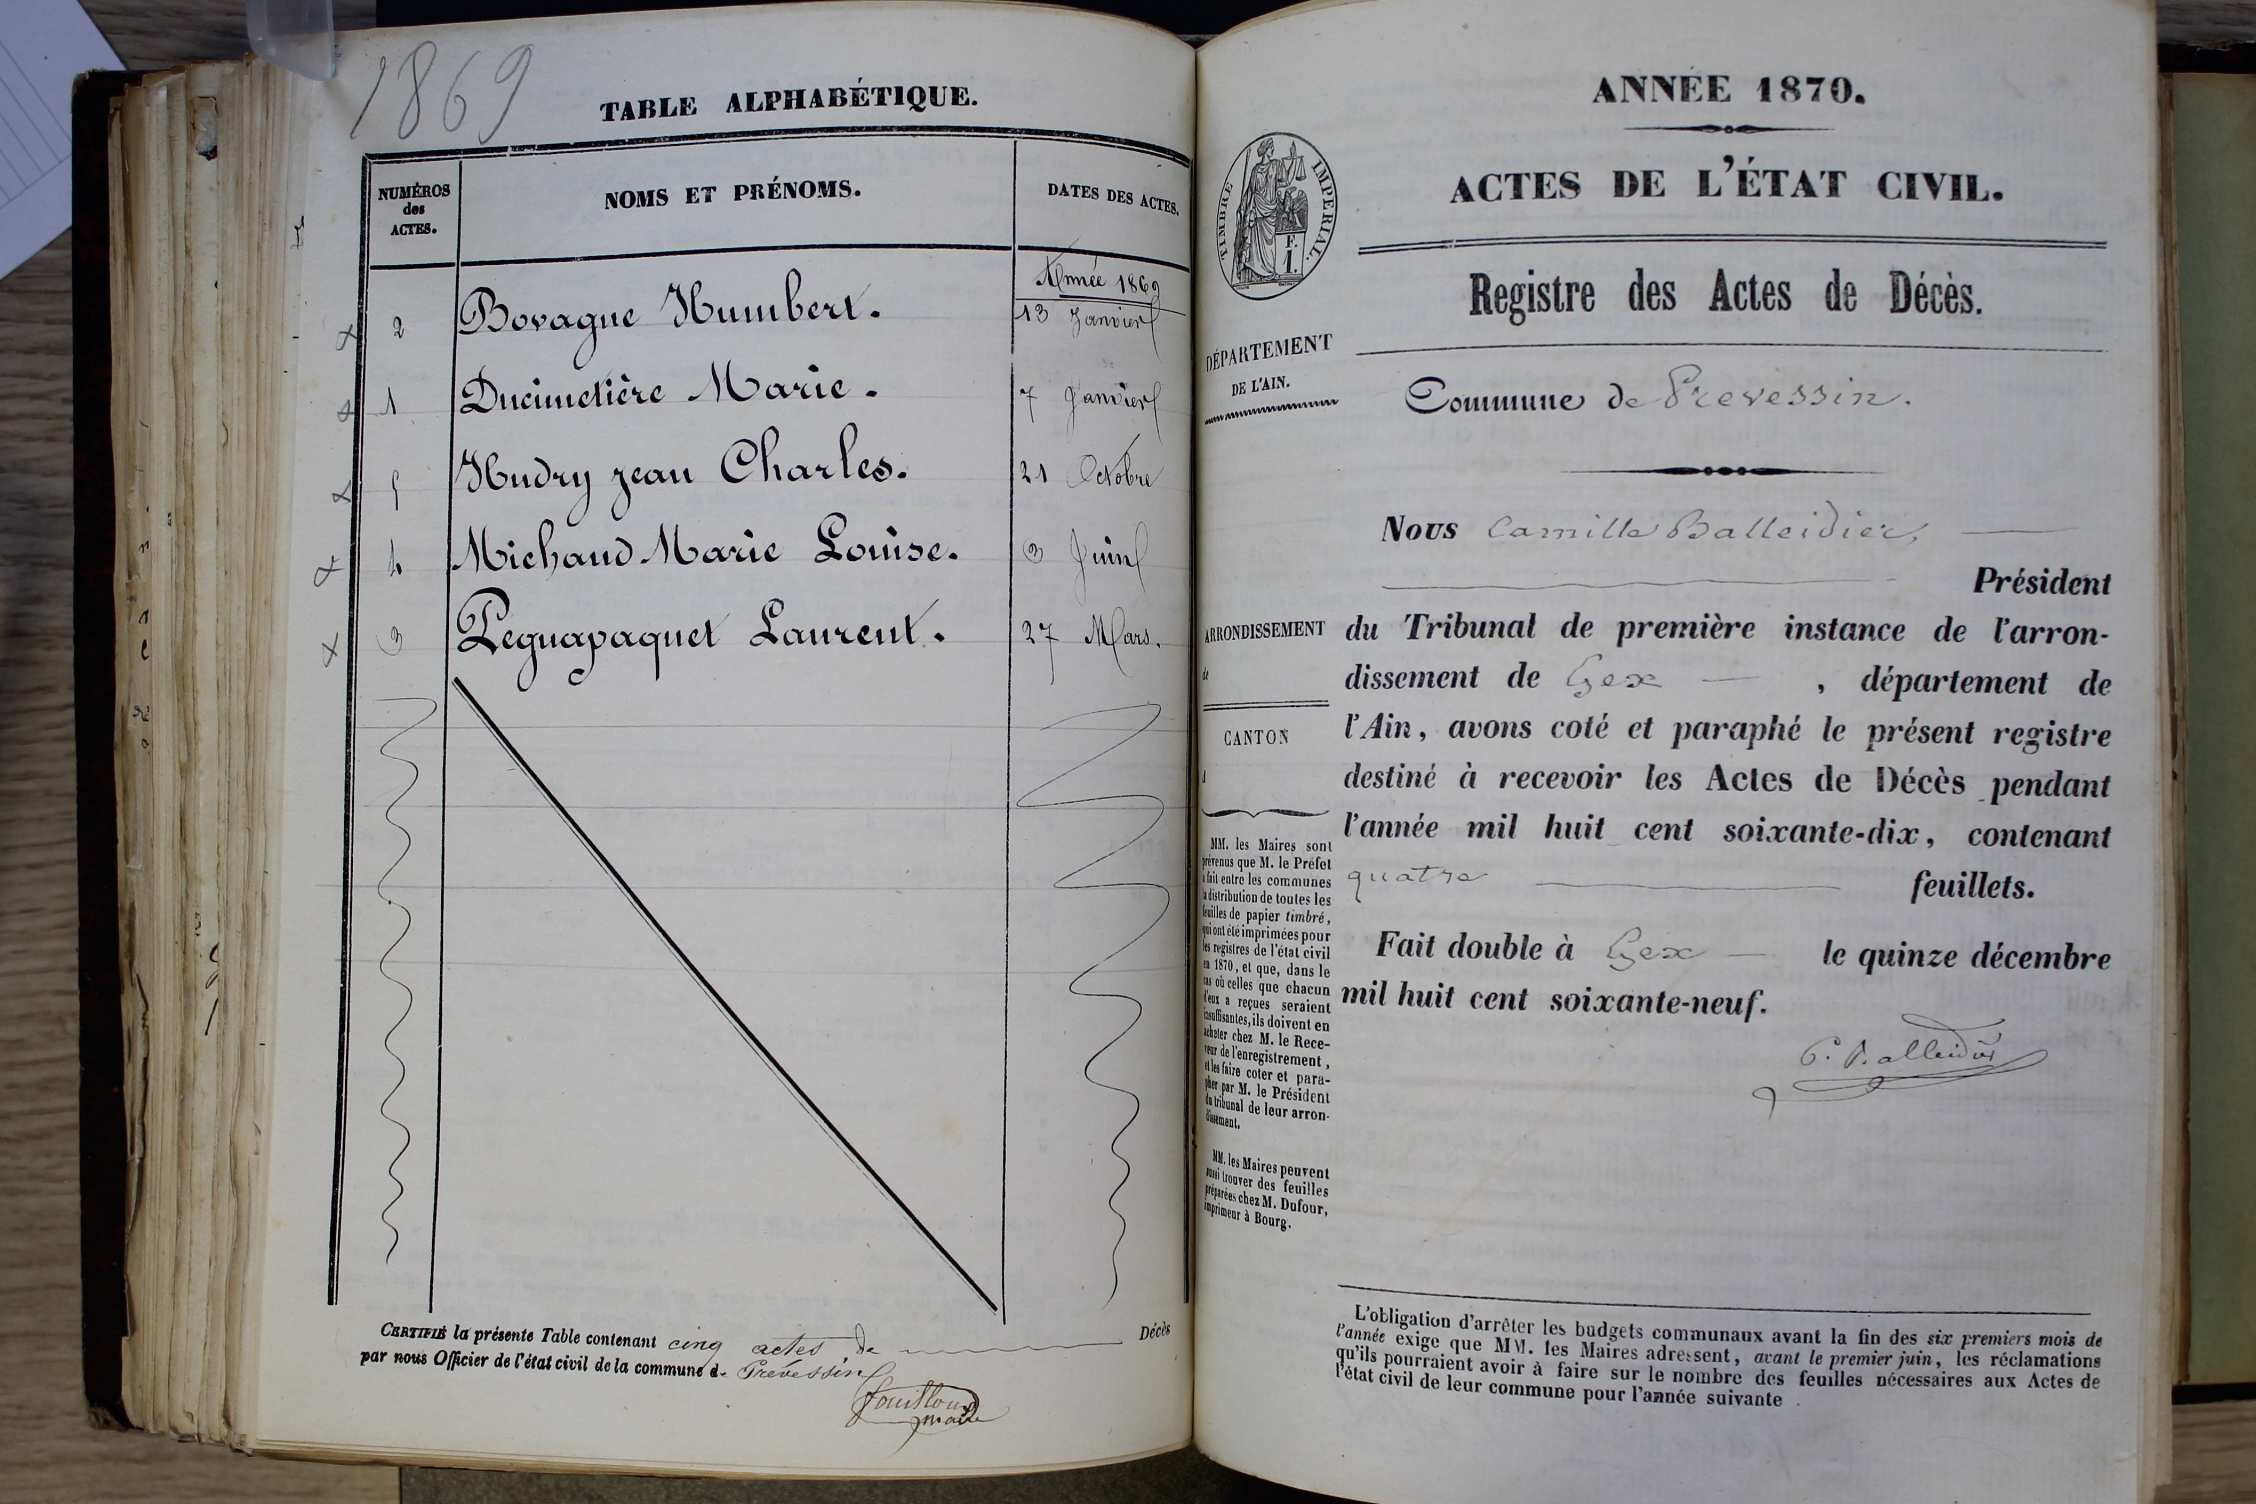 1869
TABLE ALPHABÉTIQUE.
NUMÉROS des ACTES. NOMS ET PRÉNOMS. DATES DES ACTES.
Année 1869
2 Bovagne Humbert. 13 Janvier
1 Ducimetière Marie. 7 Janvier
5 Hudry jean Charles. 21 Octobre
4 Michaud Marie Louise. 3 Juin
3 Peguapaquet Laurent. 27 Mars.
CERTIFIÉ la présente Table contenant cinq actes de Décès
par nous Officier de l'état civil de la commune de Prévessin
maire
ANNÉE 1870.
ACTES DE L'ÉTAT CIVIL.
TIMBRE IMPÉRIAL.
F.
1.
Registre des Actes de Décès.
DÉPARTEMENT
DE L'AIN.
Commune de Prevessin.
Nous Camille Balleidier,
Président
ARRONDISSEMENT
de
CANTON
d
du Tribunal de première instance de l'arron-
dissement de Gex, département de
l'Ain, avons coté et paraphé le présent registre
destiné à recevoir les Actes de Décès pendant
l'année mil huit cent soixante-dix, contenant
quatre feuillets.
Fait double à Gex le quinze décembre
mil huit cent soixante-neuf.
C. Balleidier
MM. les Maires sont
prévenus que M. le Préfet
a fait entre les communes
la distribution de toutes les
feuilles de papier timbré,
qui ont été imprimées pour
les registres de l'état civil
en 1870, et que, dans le
cas où celles que chacun
d'eux a reçues seraient
insuffisantes, ils doivent en
acheter chez M. le Rece-
veur de l'enregistrement,
et les faire coter et para-
pher par M. le Président
du tribunal de leur arron-
dissement.
MM. les Maires peuvent
aussi trouver des feuilles
préparées chez M. Dufour,
imprimeur à Bourg.
L'obligation d'arrêter les budgets communaux avant la fin des six premiers mois de
l'année exige que MM. les Maires adressent, avant le premier juin, les réclamations
qu'ils pourraient avoir à faire sur le nombre des feuilles nécessaires aux Actes de
l'état civil de leur commune pour l'année suivante.